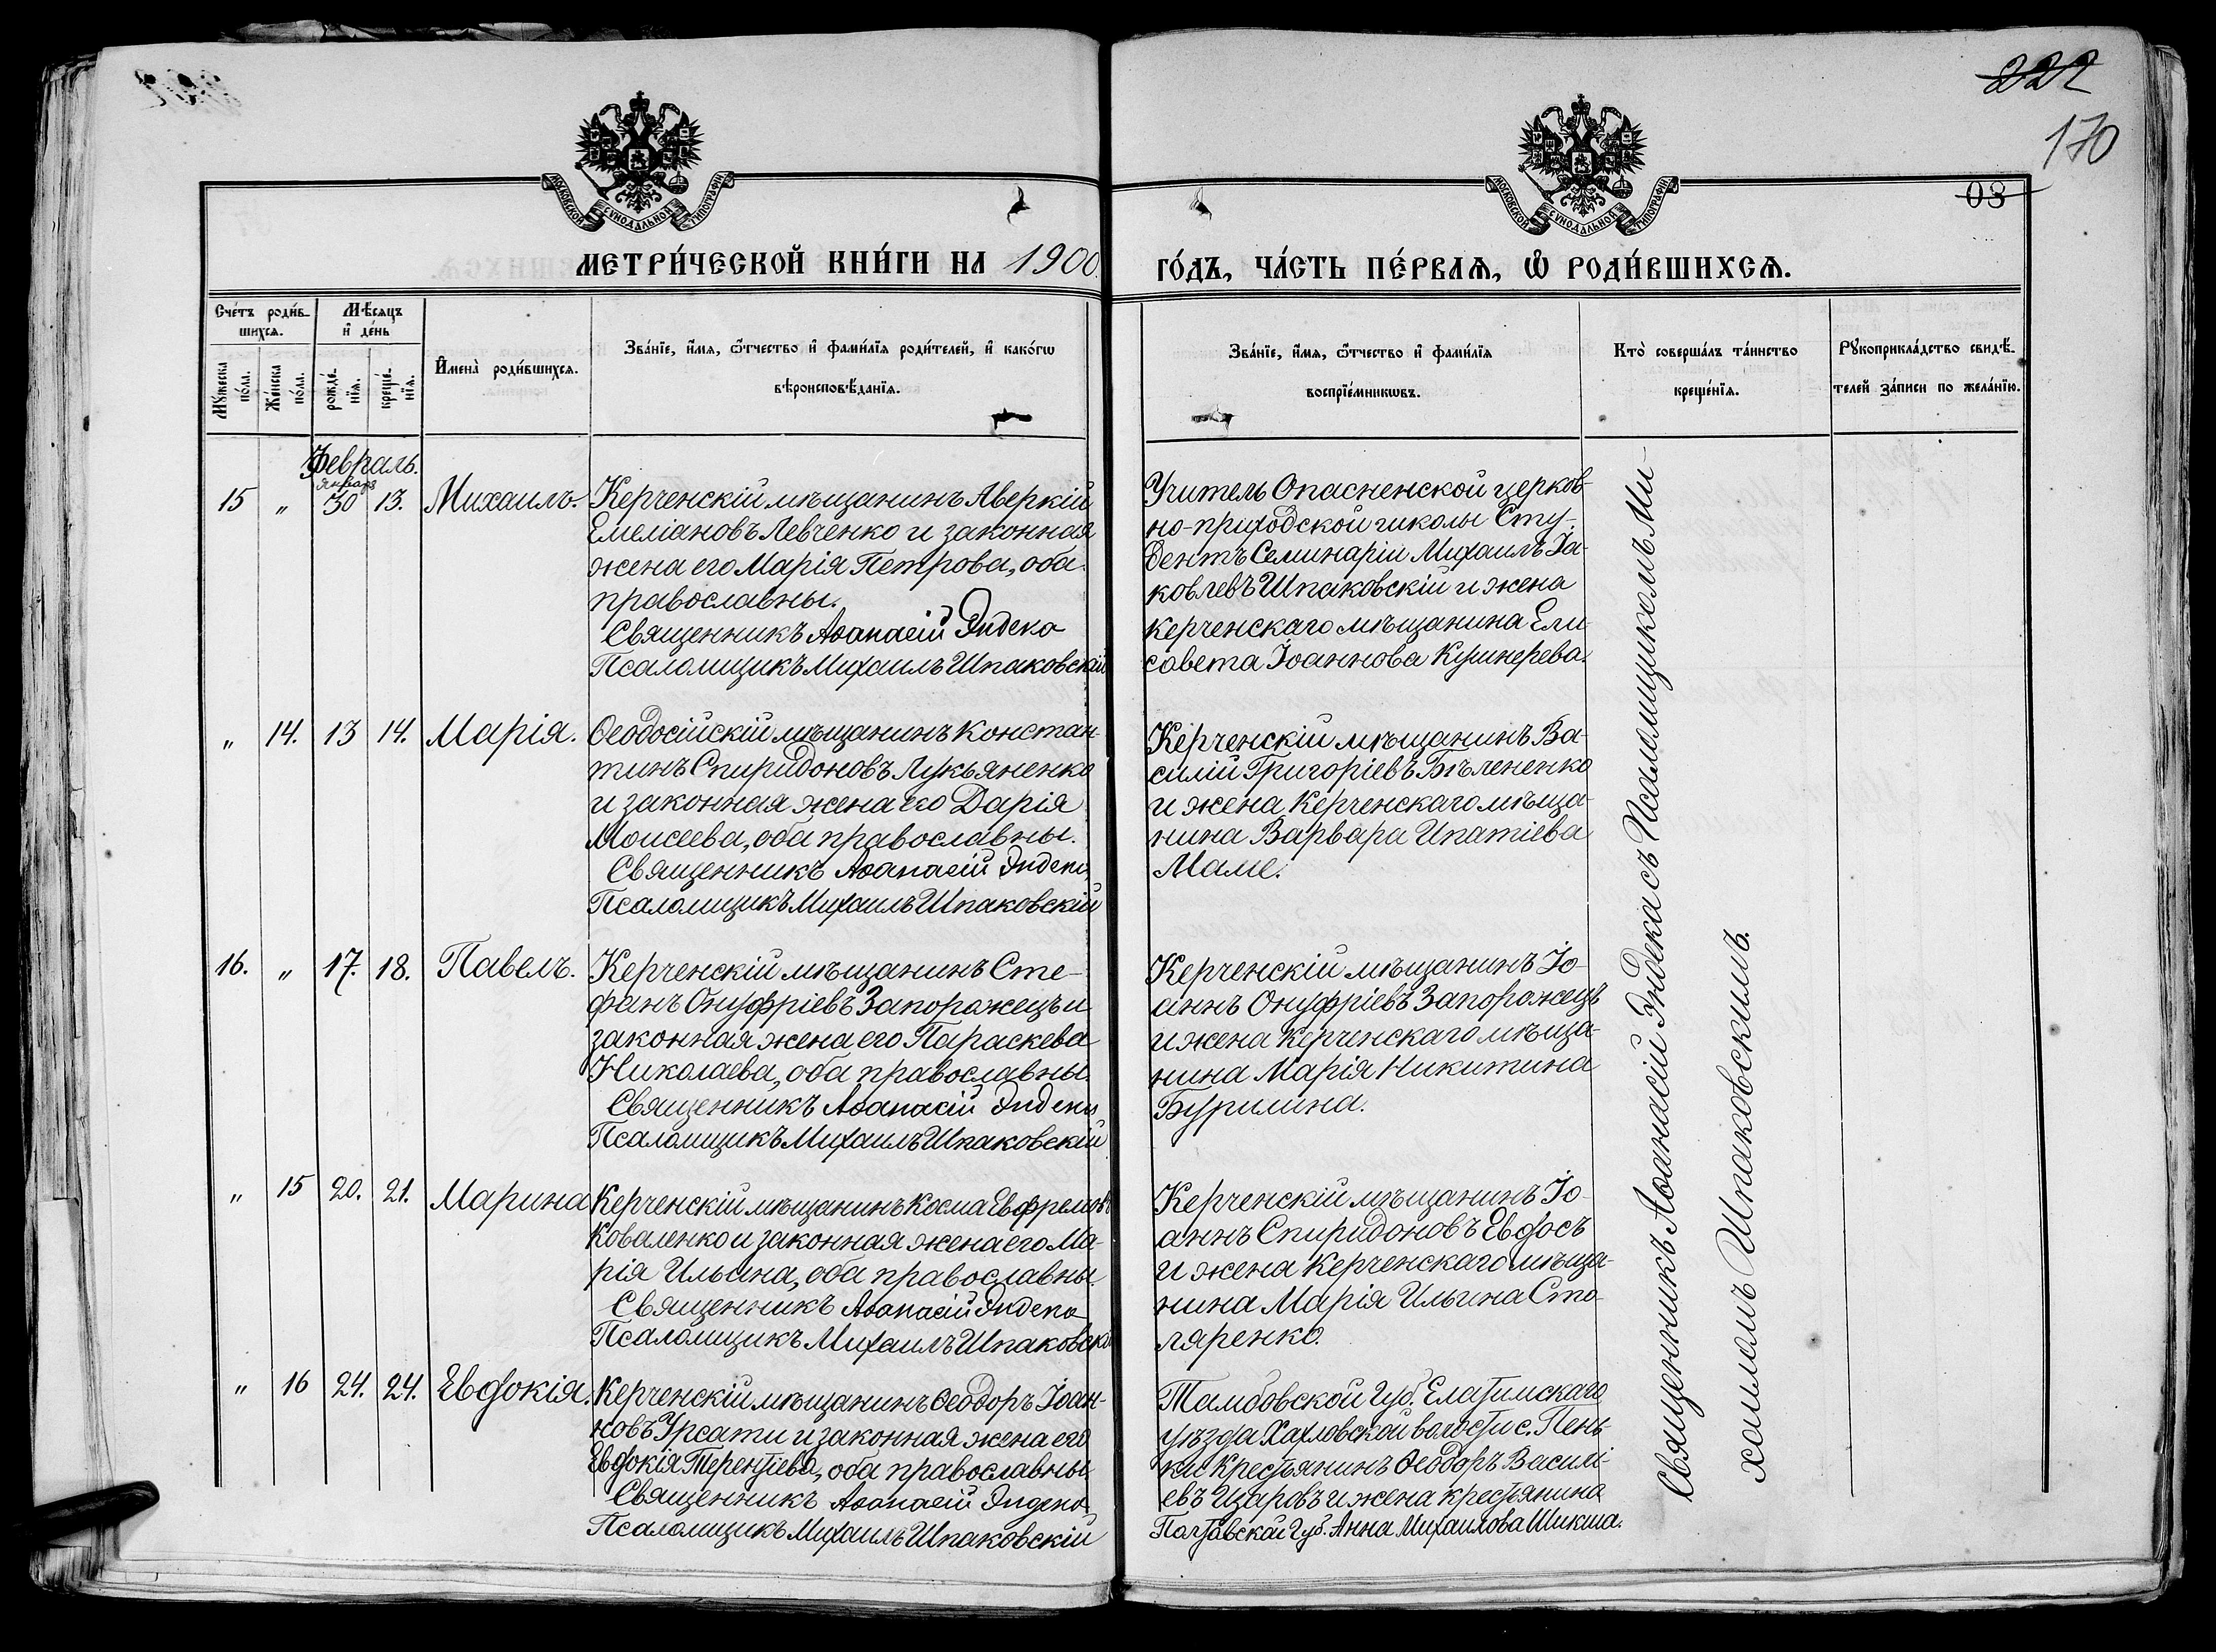 222
170
08
МОСКОВСКОЙ СѴНОДАЛЬНОЙ ТИПОГРАФІИ
МОСКОВСКОЙ СѴНОДАЛЬНОЙ ТИПОГРАФІИ
МЕТРИ́ЧЕСКОЙ КНИ́ГИ НА 1900
ГО́ДЪ, ЧА́СТЬ ПЕ́РВАѦ, Ѡ҆ РОДИ́ВШИХСѦ.
Сче́тъ роди́в-
шихсѧ.
Мꙋ́жеска по́ла.
Же́нска по́ла.
Мѣ́сяцъ
и҆ де́нь
рожде́-
нїѧ.
креще́-
нїѧ.
И҆мена̀ роди́вшихсѧ.
Зва́нїе, и҆́мѧ, ѻ҆́тчество и҆ фами́лїѧ роди́телей, и҆ како́гѡ
вѣроисповѣ́данїѧ.
Зва́нїе, и҆́мѧ, ѻ҆́тчество и҆ фами́лїѧ
воспрїе́мникѡвъ.
Кто̀ соверша́лъ та́инство
креще́нїѧ.
Рꙋкоприкла́дство свидѣ́-
телей за́писи по жела́нїю.
Февраль.
Января
15 „ 30 13. Михаилъ.
Керченскій мѣщанинъ Аверкій
Емеліановъ Левченко и законная
жена его Марія Петрова, оба
православны.
Священникъ Аѳанасій Эндека
Псаломщикъ Михаилъ Шпаковскій
Учитель Опасненской церков-
но-приходской школы Сту-
дентъ Семинаріи Михаилъ Іа-
ковлевъ Шпаковскій и жена
керченскаго мѣщанина Ели
савета Іоаннова Кушнерева.
„ 14. 13 14. Марія.
Ѳеодосійскій мѣщанинъ Констан-
тинъ Спиридоновъ Лукьяненко
и законная жена его Дарія
Моисеева, оба православны.
Священникъ Аѳанасій Эндека
Псаломщикъ Михаилъ Шпаковскій
Керченскій мѣщанинъ Ва-
силій Григоріевъ Бѣлененко
и жена Керченскаго мѣща-
нина Варвара Ипатіева
Маме.
16. „ 17. 18. Павелъ.
Керченскій мѣщанинъ Сте-
фанъ Онуфріевъ Запорожецъ и
законная жена его Параскева
Николаева, оба православны.
Священникъ Аѳанасій Эндека
Псаломщикъ Михаилъ Шпаковскій
Керченскій мѣщанинъ Іо-
аннъ Онуфріевъ Запорожецъ
и жена керченскаго мѣща-
нина Марія Никитина
Бурилина.
„ 15 20. 21. Марина
Керченскій мѣщанинъ Косма Евфремовъ
Коваленко и законная жена его Ма-
рія Ильина, оба православны.
Священникъ Аѳанасій Эндека
Псаломщикъ Михаилъ Шпаковскій
Керченскій мѣщанинъ Іо-
аннъ Спиридоновъ Евдосъ
и жена керченскаго мѣща-
нина Марія Ильина Сто-
ляренко.
„ 16 24. 24. Евдокія.
Керченскій мѣщанинъ Ѳеодоръ Іоан-
новъ Урсати и законная жена его
Евдокія Терентіева, оба православны
Священникъ Аѳанасій Эндека
Псаломщикъ Михаилъ Шпаковскій
Тамбовской Губ. Елатимскаго
уѣзда Хахловской волости с. Пень-
ки Крестьянинъ Ѳеодоръ Василі-
евъ Царовъ и жена крестьянина
Полтавской Губ. Анна Михаилова Шикша.
Священникъ Аѳанасій Эндека съ Псаломщикомъ Ми-
хаиломъ Шпаковскимъ.